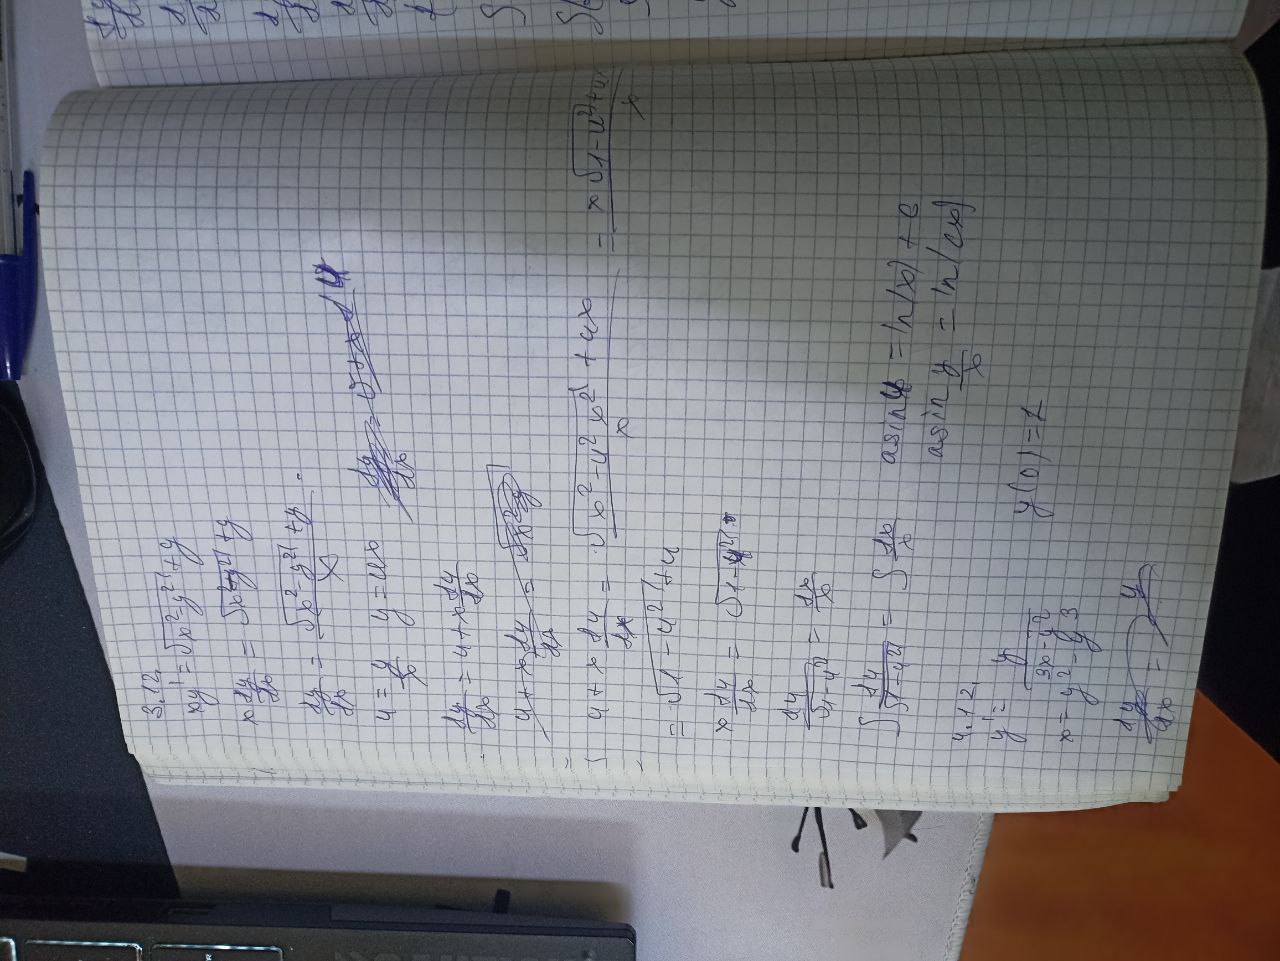 3.12
xy' = √(x²-y²) + y
x dy/dx = √(x²-y²) + y
dy/dx = (√(x²-y²) + y)/x
u = y/x    y = ux
dy/dx = u + x du/dx
u + x du/dx = (√(x²-u²x²) + ux)/x = (x√(1-u²) + ux)/x
= √(1-u²) + u
x du/dx = √(1-u²)
du/√(1-u²) = dx/x
∫ du/√(1-u²) = ∫ dx/x    asin u = ln|x| + C
asin y/x = ln|Cx|
4.12
y' = y/(3x-y²)    y(0) = 1
x = y² - y³